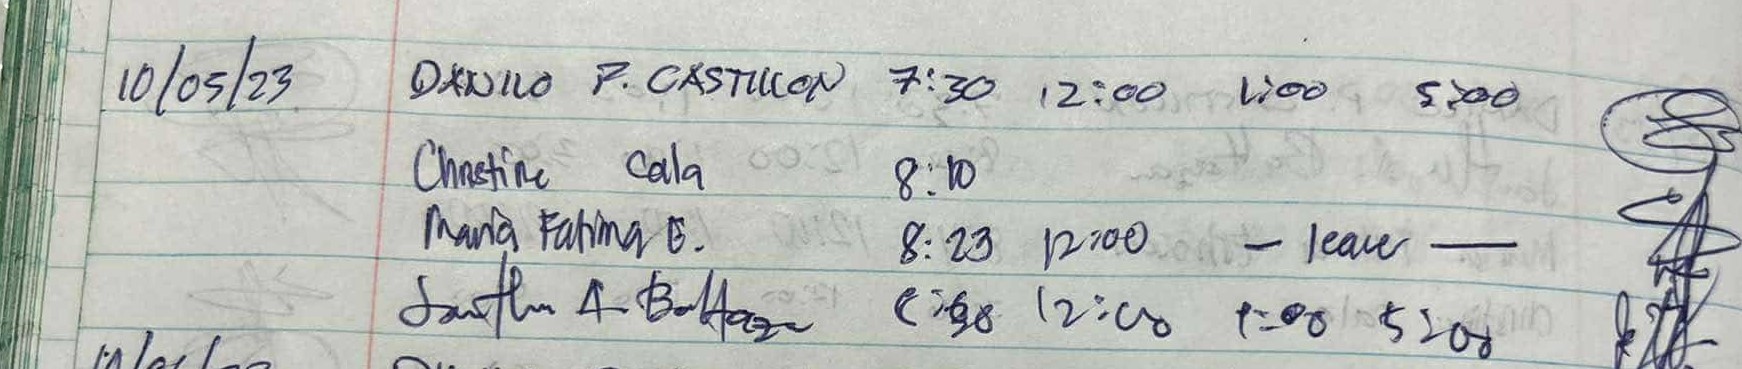 10/05/23 DANILO P. CASTILLON 7:30 12:00 1:00 5:00
Christine Cala 8:10
Maria Fatima E. 8:23 12:00 — leave —
A. 12:00 1:00 5:00